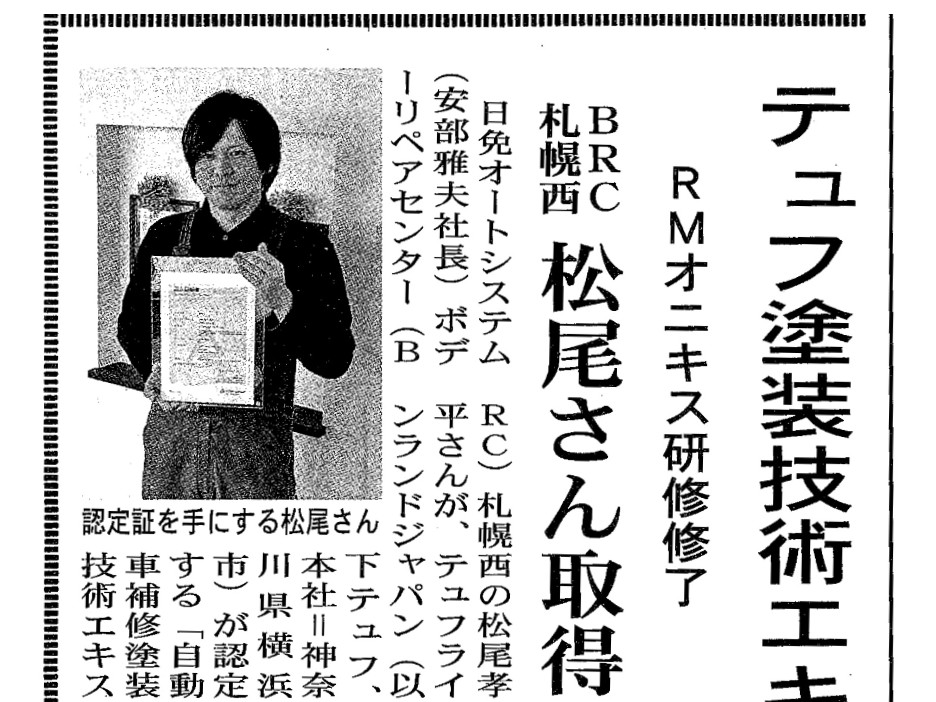 テュフ塗装技術エキ
RMオニキス研修修了
BRC
札幌西
松尾さん取得
日免オートシステム
（安部雅夫社長）ボデ
ーリペアセンター（B
RC）札幌西の松尾孝
平さんが、テュフライ
ンランドジャパン（以
下テュフ、
本社＝神奈
川県横浜
市）が認定
する「自動
車補修塗装
技術エキス
認定証を手にする松尾さん